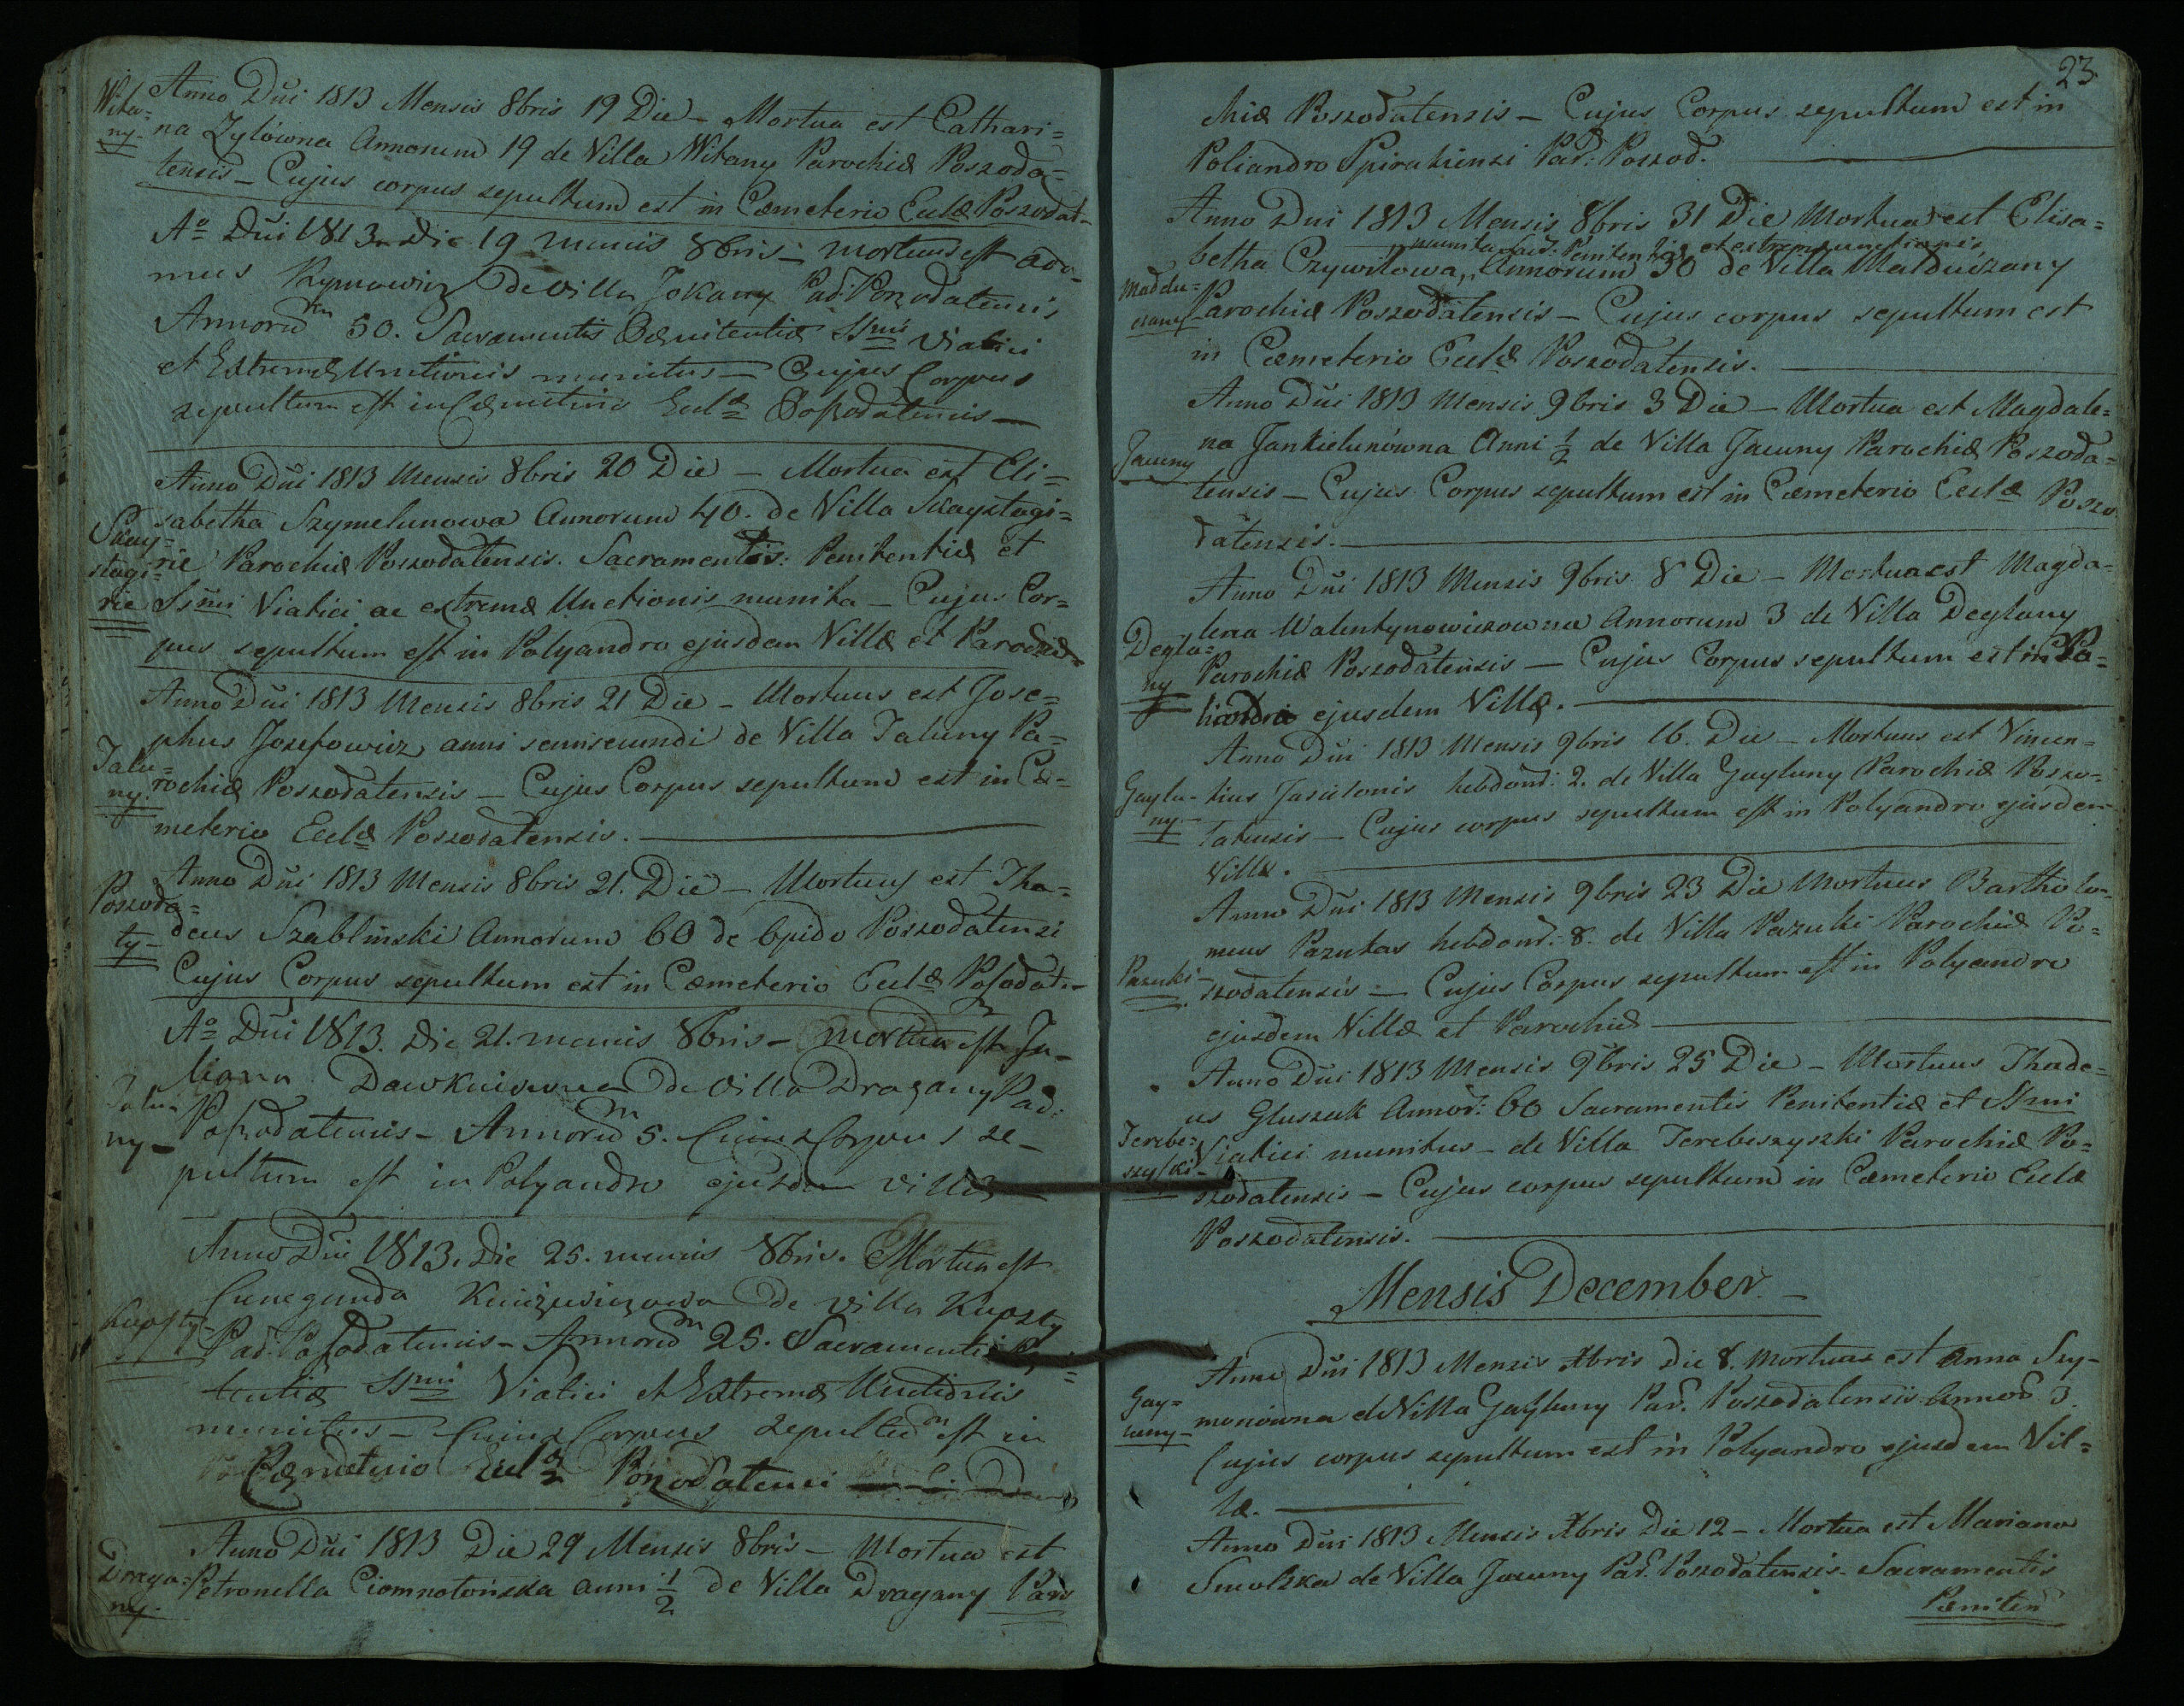 Wita=
ny
Anno Dni 1813 Mensis 8bris 19 Die - Mortua est Cathari=
na Zylówna Annorum 19 de Villa Witany Parochiæ Poszoda=
tensis - Cujus corpus sepultum est in Cœmeterio Ecclæ Poszodat-
Ao Dni 1813. Die 19 mensis 8bris - mortuus est Ada-
mus de villa Jokany Par: Poszodatensis
Annorum 50. Sacramentis Pœnitentiæ SSmi Viatici
et Extremæ Unctionis munitus - Cujus Corpus
sepultum est in Cœmeterio Eclæ Poszodatensis -
Skay=
stagi=
rie
Anno Dni 1813 Mensis 8bris 20 Die - Mortua est Eli=
sabetha Szymelunowa Annorum 40. de Villa Skaystagi=
rie Parochiæ Poszodatensis. Sacramentis: Penitentiæ et
SSmi Viatici ac extremæ Unctionis munita - Cujus Cor=
pus sepultum est in Polyandro ejusdem Villæ et Parochiæ
Talu=
ny
Anno Dni 1813 Mensis 8bris 21 Die - Mortuus est Jose=
phus Josefowicz anni semisecundi de Villa Taluny Pa=
rochiæ Poszodatensis - Cujus Corpus sepultum est in Cœ=
meterio Eclæ Poszodatensis.
Poszoda=
ty
Anno Dni 1813 Mensis 8bris 21. Die - Mortuus est Tha=
deus Szablinski Annorum 60 de Opido Poszodatensi
Cujus Corpus sepultum est in Cœmeterio Eclæ Posodat-
Talu-
ny-
Ao Dni 1813. Die 21. mensis 8bris - Mortua est Ju-
liana de Villa Dragany Par:
Poszodatensis - Annorum 5. Cuius Corpus se-
pultum est in Polyandro ejusdem villæ -
Kupsty
Anno Dni 1813. Die 25. mensis 8bris. Mortua est
Cunegunda de villa Kupszty
Par. Poszodatensis - Annorum 25. Sacramentis
tentiæ SSmi Viatici et Extremæ Unctionis
munitus - Cuius Corpus sepultum est in
Cœmeterio Eclæ Poszodatensi
Draga=
ny
Anno Dni 1813 Die 29 Mensis 8bris - Mortua est
Petronella Ciomnołońska anni 1/2 de Villa Dragany Paro
23.
chiæ Poszodatensis - Cujus Corpus sepultum est in
Poliandro Spirakiensi Par: Poszod.
Maddu=
czany
Anno Dni 1813 Mensis 8bris 31 Die Mortua est Elisa=
munita Sacr: Penitentiæ et extremæ unctionis
betha Czywilowa,, Annorum 30 de Villa Malduczany
Parochiæ Poszodatensis - Cujus corpus sepultum est
in Cœmeterio Eclæ Poszodatensis.
Jacuny
Anno Dni 1813 Mensis 9bris 3 Die - Mortua est Magdale=
na Jankielunówna Anni 1/2 de Villa Jacuny Parochiæ Poszoda=
tensis - Cujus Corpus sepultum est in Cœmeterio Eclæ Poszo
datensis.
Degla=
ny
Anno Dni 1813 Mensis 9bris 8 Die - Mortua est Magda=
lena Walentynowiczowna Annorum 3 de Villa Deglany
Parochiæ Poszodatensis - Cujus Corpus sepultum est in Po=
liandro ejusdem Villæ.
Gaylu-
ny
Anno Dni 1813 Mensis 9bris 16. Die - Mortuus est Vincen=
tius Jasulonis hebdom: 2. de Villa Gayluny Parochiæ Poszo=
datensis - Cujus corpus sepultum est in Polyandro ejusdem
Villæ.
Pazuki
Anno Dni 1813 Mensis 9bris 23 Die Mortuus Bartholo=
meus Pazukas hebdom: 8. de Villa Pazuki Parochiæ Po=
szodatensis - Cujus Corpus sepultum est in Polyandro
ejusdem Villæ et Parochiæ
Terebe=
szyszki
Anno Dni 1813 Mensis 9bris 25 Die - Mortuus Thade=
us Gluszak Annor: 60 Sacramentis Penitentiæ et SSmi
Viatici munitus - de Villa Terebeszyszki Parochiæ Po=
szodatensis - Cujus corpus sepultum in Cœmeterio Eclæ
Poszodatensis.
Mensis December -
Gay=
luny
Anno Dni 1813 Mensis Xbris Die 8. Mortuas est Anna Szy-
monówna de Villa Gayluny Par. Poszodatensis Annor 3.
Cujus corpus sepultum est in Polyandro ejusdem Vil=
læ.
Anno Dni 1813 Mensis Xbris Die 12 - Mortua est Mariana
Smolska de Villa Jacuny Par. Poszodatensis - Sacramentis
Pœniten